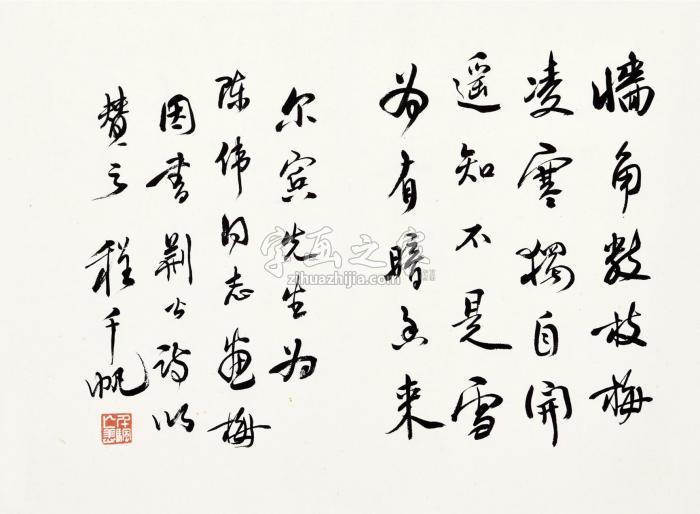 牆角数枝梅
凌寒獨自開
遥知不是雪
为有暗香来
尔宾先生为
陈伟同志画梅
因書荆公诗以
赞之 程千帆
字画之家
zihuazhijia.com